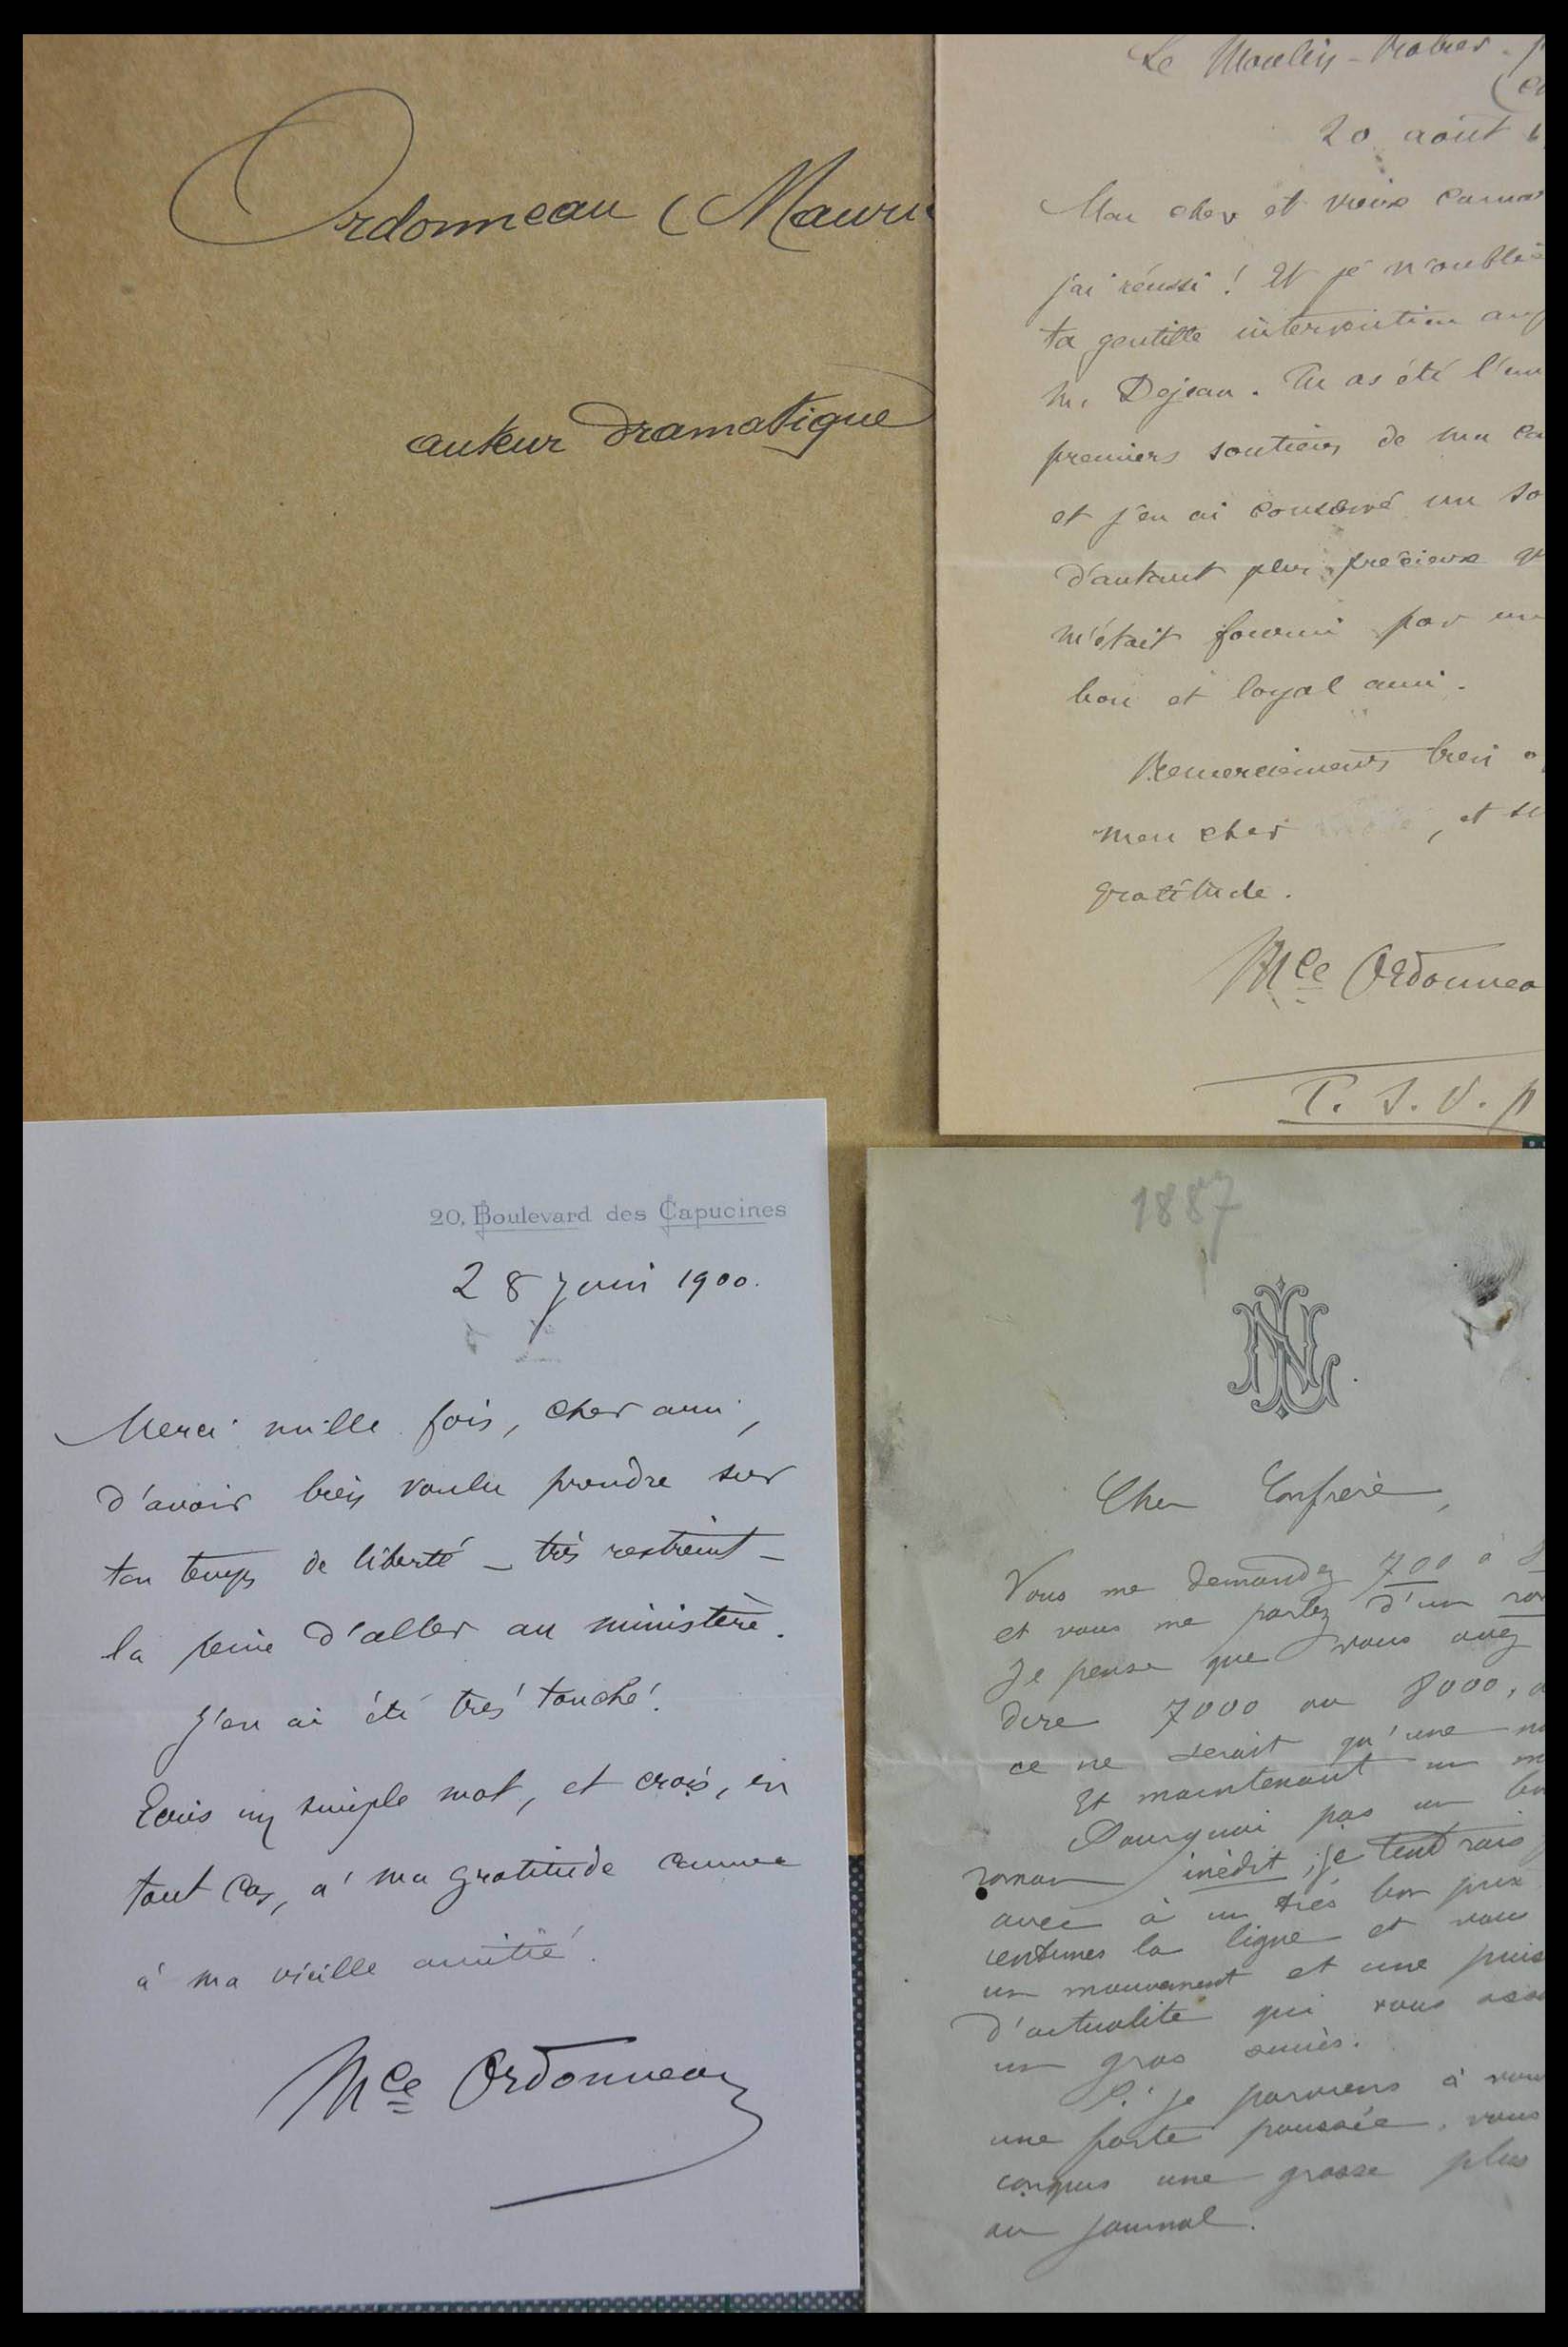 Ordonneau (Mauri
auteur dramatique
Le Moulin-
20 août
Mon cher et vieux camar
j'ai réussi ! Et je n'oublie
ta gentille intervention aup
M. Dejean. Tu as été l'un
premiers soutiens de ma ca
et j'en ai conservé un so
d'autant plus précieux q
m'était fourni par un
bon et loyal ami.
Remerciements bien
mon cher , et
gratitude.
Mce Ordonnea
T. S. V. p
20, Boulevard des Capucines
28 juin 1900.
Merci mille fois, cher ami,
d'avoir bien voulu prendre sur
ton temps de liberté - très restreint -
la peine d'aller au ministère.
J'en ai été très touché !
Ecris un simple mot, et crois, en
tout cas, à ma gratitude comme
à ma vieille amitié.
Mce Ordonneau
1887
Cher Confrère,
Vous me demandez 700 à
et vous me parlez d'un ro
Je pense que vous avez
dire 7000 ou 8000,
ce ne serait qu'une
Et maintenant un
Pourquoi pas un
roman inédit ; je
à un très bon prix
centimes la ligne et vous
un mouvement et une puis
d'actualité qui vous ass
un gros succès.
Si je parviens à
une forte poussée, vous
conquis une grosse plus
au journal.